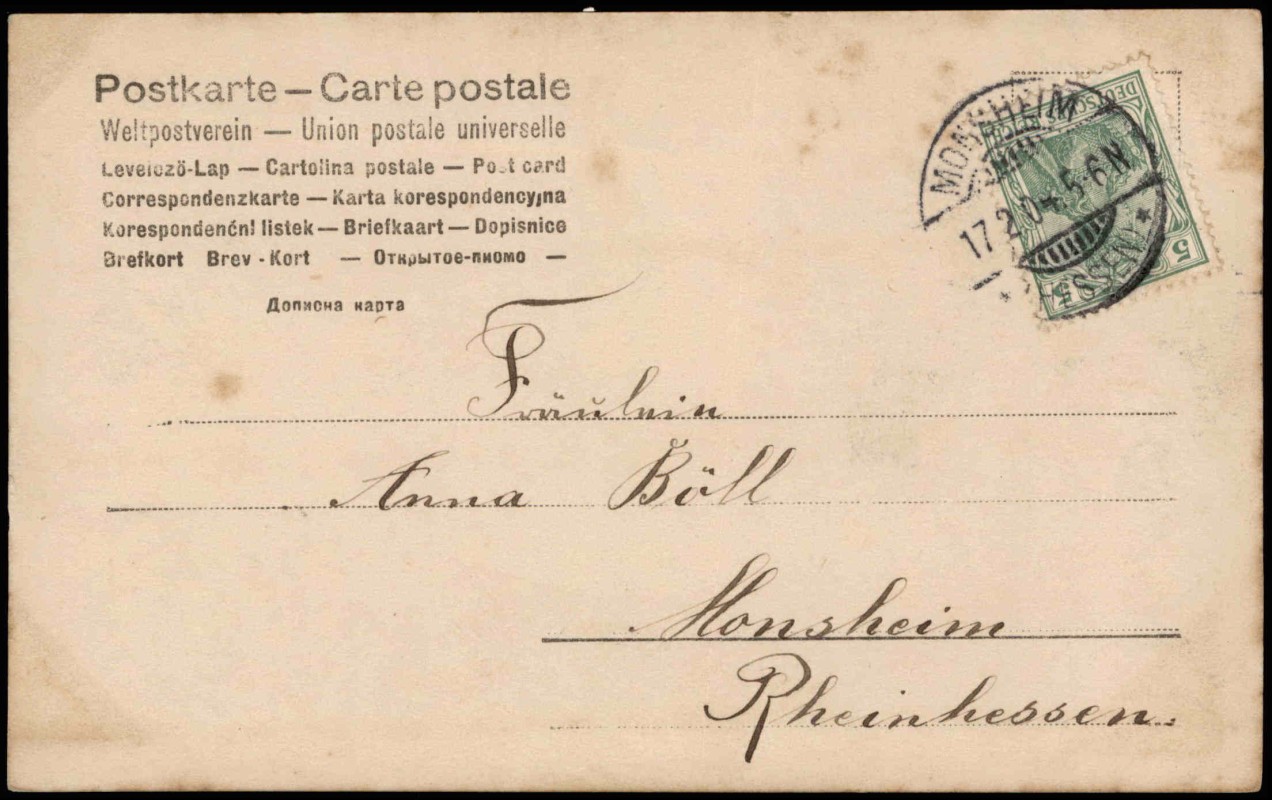 Postkarte — Carte postale
Weltpostverein — Union postale universelle
Levelező-Lap — Cartolina postale — Post card
Correspondenzkarte — Karta korespondencyjna
Korespondenční listek — Briefkaart — Dopisnice
Brefkort Brev-Kort — Открытое-писмо —
Дописна карта
MONSHEIM
17.2.04 5-6 N
* (HESSEN) *
DEUTSCHES REICH
5 5
Fräulein
Anna Böll
Monsheim
Rheinhessen.